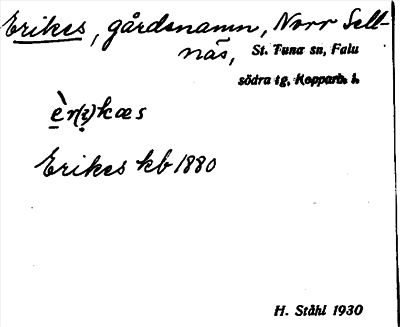 Erikes, gårdsnamn, Norr Sell-
näs, St. Tuna sn, Falu
södra tg, Kopparb. l.
èr(i)kæs
Erikes kb 1880
H. Ståhl 1930